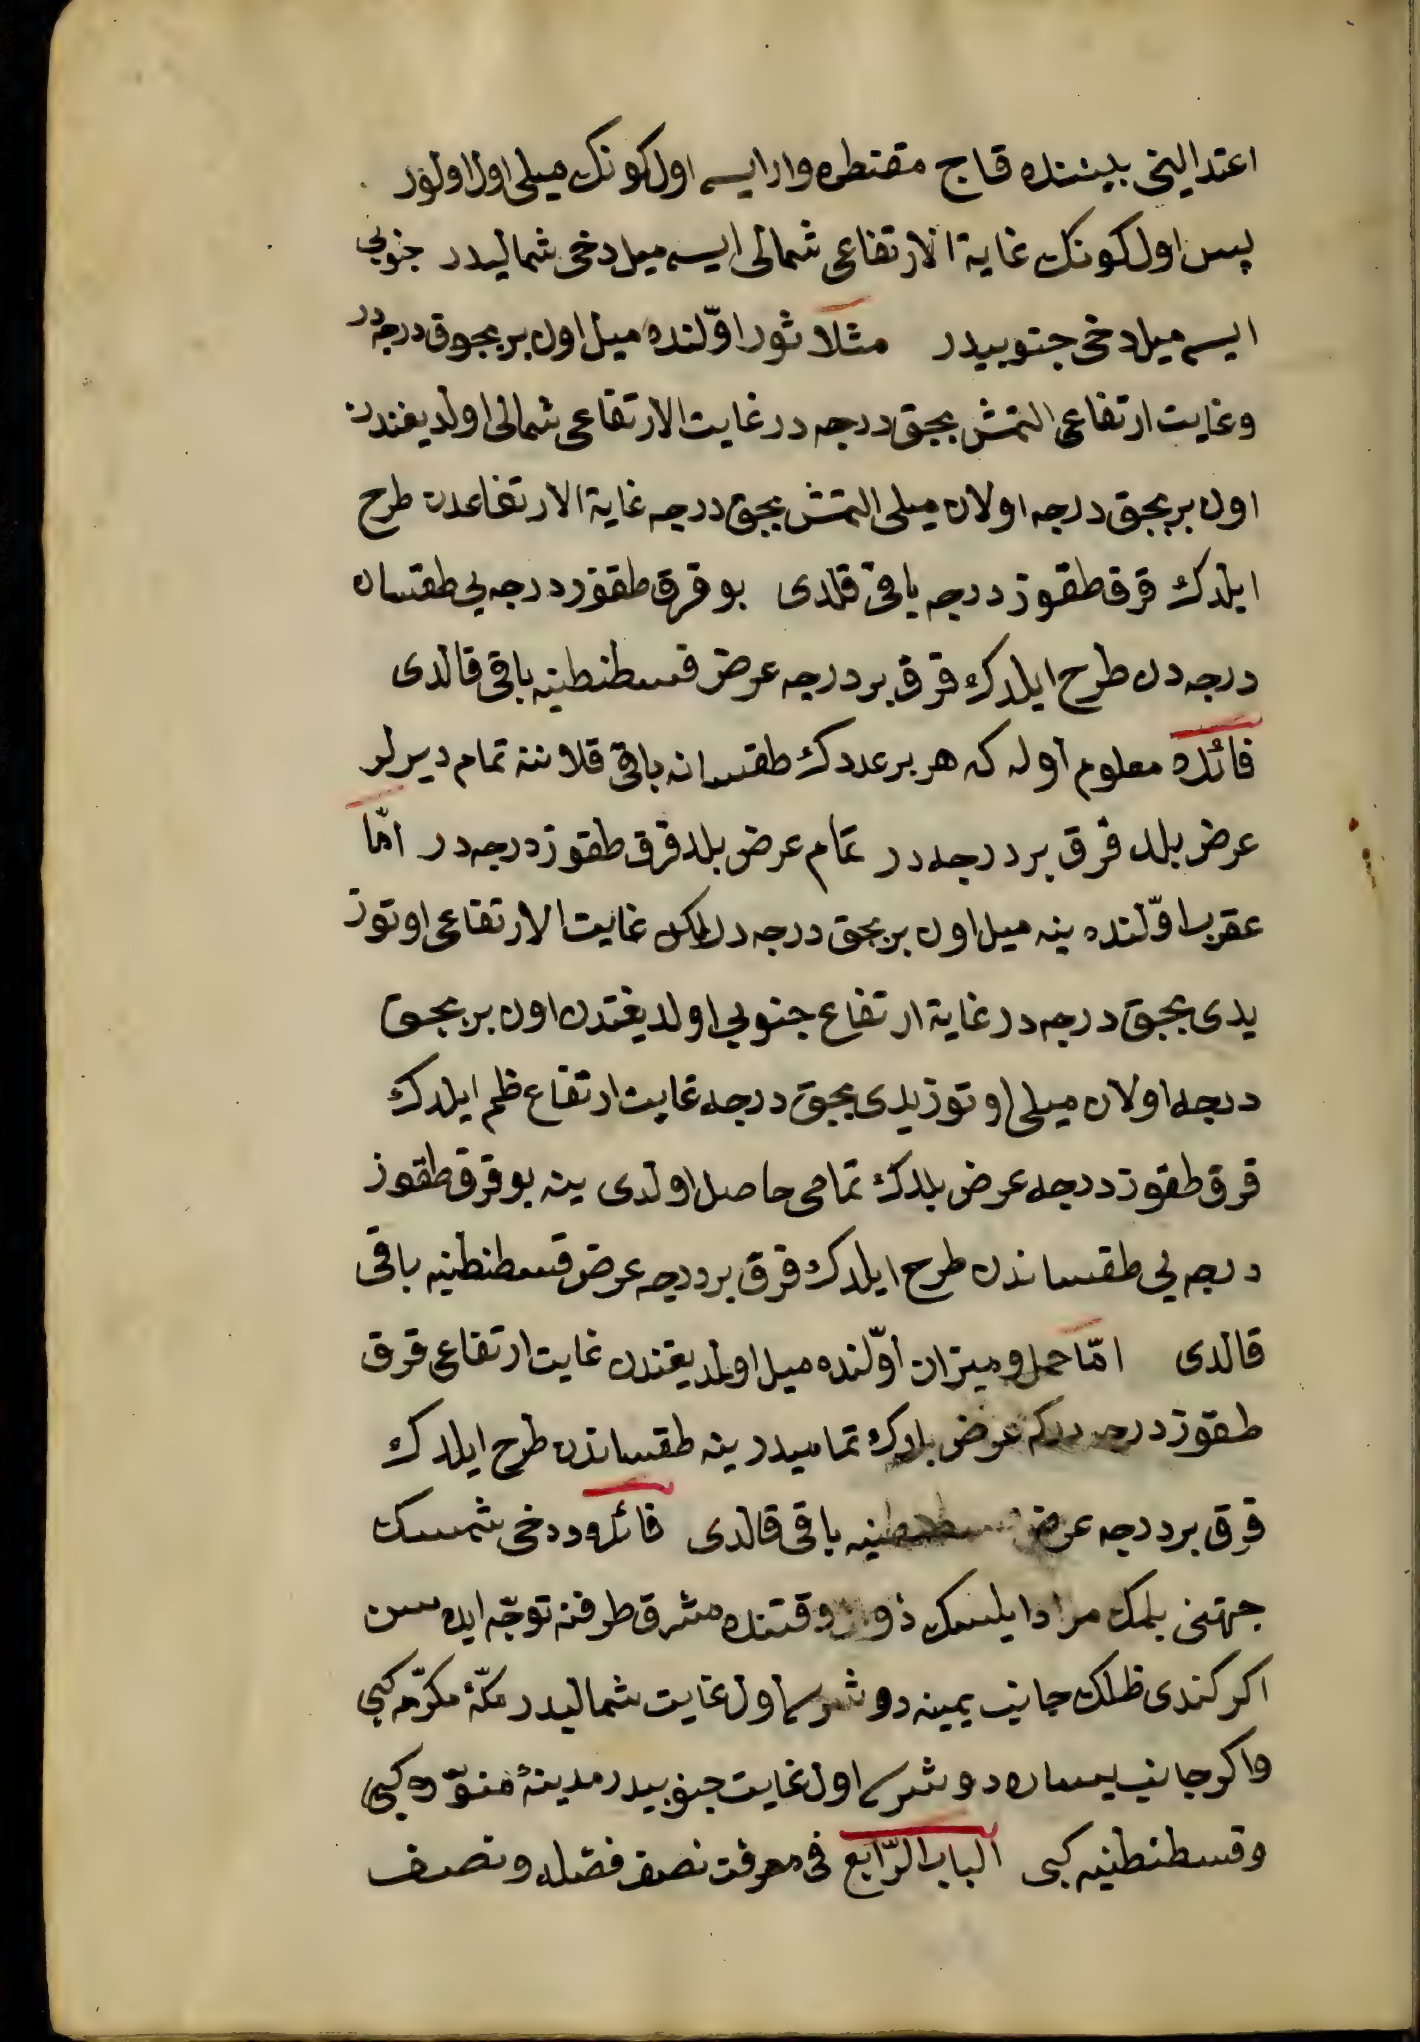 اعتدالینی بیننده قاچ مقنطره وار ایسه اول کونک میلی اول اولور
پس اول کونک غایة الارتفاعی شمالی ایسه میل دخی شمالیدر جنوبی
ایسه میل دخی جنوبیدر مثلا ثور اوّلنده میل اون بر بجوق درجه در
وغایت ارتفاعی التمش بجق درجه در غایت الارتفاعی شمالی اولدیغندن
اون بر بجق درجه اولان میلی التمش بجق درجه غایة الارتفاعدن طرح
ایلدک قرق طقوز درجه باقی قلدی بو قرق طقوز درجه یی طقسان
درجه دن طرح ایلدک قرق بر درجه عرض قسطنطنیه باقی قالدی
فائده معلوم اوله که هر بر عددک طقسانه باقی قلاننه تمام دیرلر
عرض بلد قرق بر درجه در تمام عرض بلد قرق طقوز درجه در امّا
عقرب اوّلنده ینه میل اون بر بجق درجه در لکن غایت الارتفاعی اوتوز
یدی بجق درجه در غایة ارتفاع جنوبی اولدیغندن اون بر بجق
درجه اولان میلی اوتوز یدی بجق درجه غایت ارتفاع ظم ایلدک
قرق طقوز درجه عرض بلدک تمامی حاصل اولدی ینه بو قرق طقوز
درجه یی طقساندن طرح ایلدک قرق بر درجه عرض قسطنطنیه باقی
قالدی امّا حمل و میزان اوّلنده میل اولمدیغندن غایت ارتفاعی قرق
طقوز درجه درکه عرض بلدک تمامیدر ینه طقساندن طرح ایلدک
قرق بر درجه عرض قسطنطنیه باقی قالدی فائده ودخی شمسک
جهتنی بلمک مراد ایلسک زوال وقتنده مشرق طرفنه توجّه ایده سن
اکر کندی ظلک جانب یمینه دوشرسه اول غایت شمالیدر مکّۀ مکرّمه کبی
واکر جانب یساره دوشرسه اول غایت جنوبیدر مدینۀ منوّره کبی
وقسطنطنیه کبی الباب الرّابع فی معرفت نصف فضله ونصف